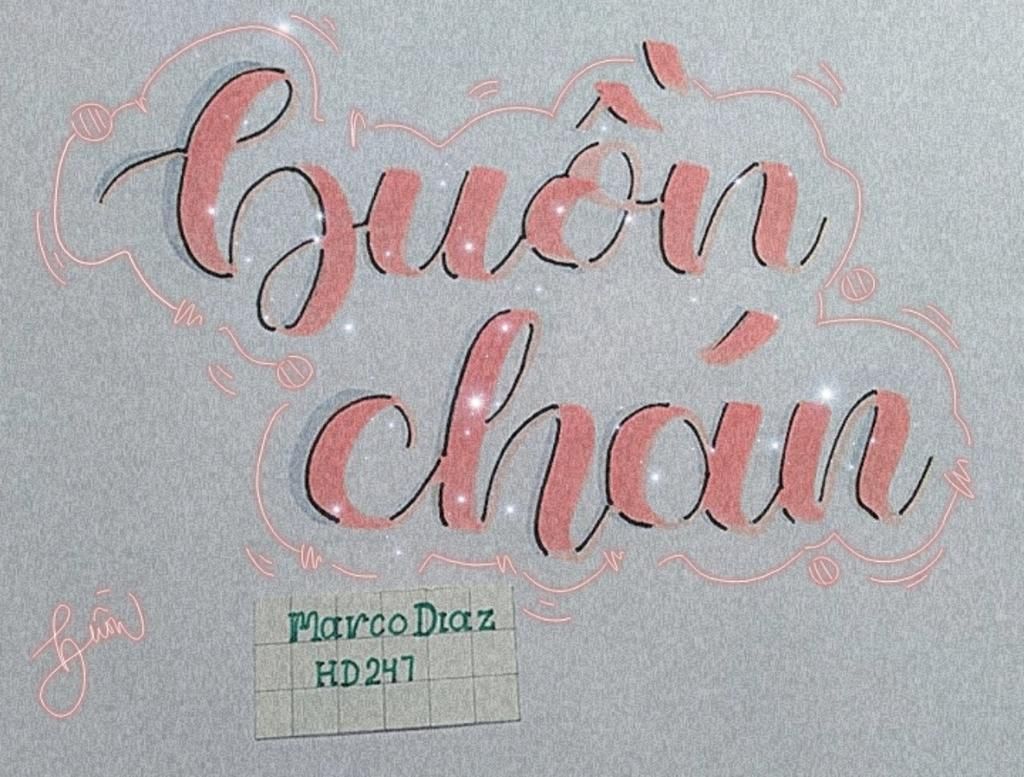 buồn
chán
buồn
Marco Diaz
HD247